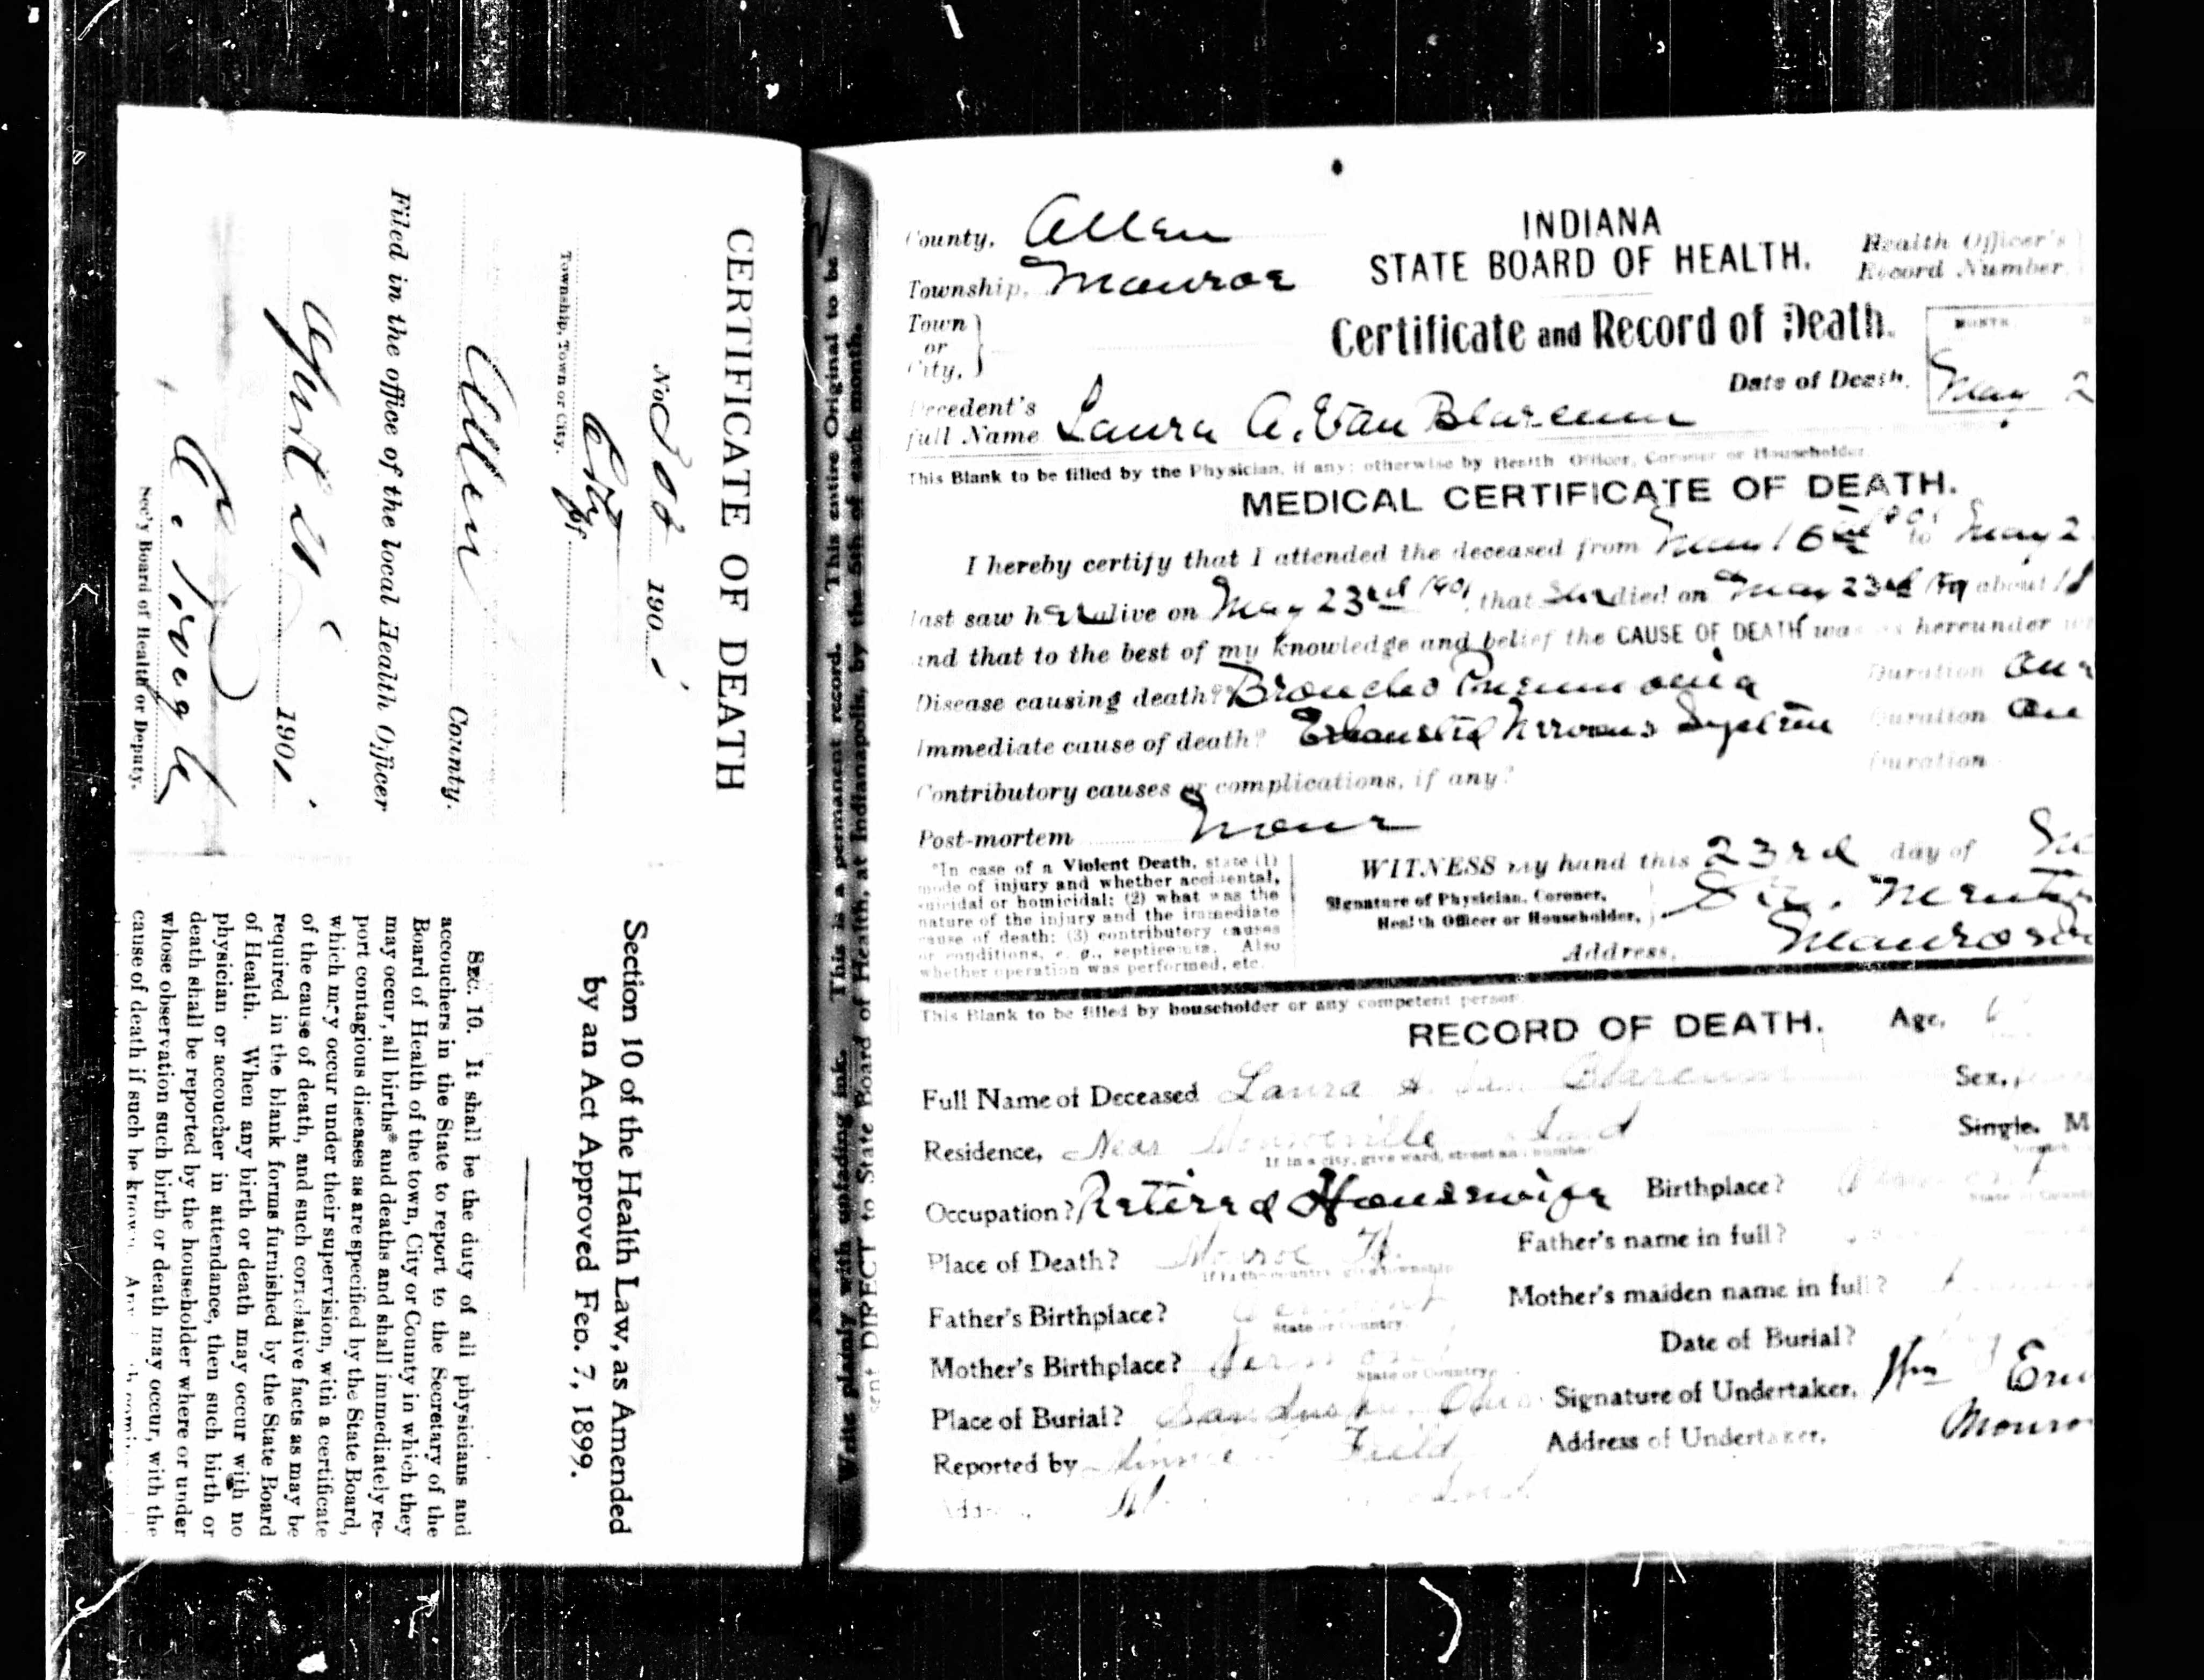 CERTIFICATE OF DEATH
No. 190 1
City
Township, Town or City. of
Allen County.
Filed in the office of the local Health Officer
1901
Sec'y Board of Health or Deputy.
Section 10 of the Health Law, as Amended
by an Act Approved Feb. 7, 1899.
SEC. 10. It shall be the duty of all physicians and
accouchers in the State to report to the Secretary of the
Board of Health of the town, City or County in which they
may occur, all births* and deaths and shall immediately re-
port contagious diseases as are specified by the State Board,
which may occur under their supervision, with a certificate
of the cause of death, and such correlative facts as may be
required in the blank forms furnished by the State Board
of Health. When any birth or death may occur with no
physician or accoucher in attendance, then such birth or
death shall be reported by the householder where or under
whose observation such birth or death may occur, with the
cause of death if such be known.
Write plainly with unfading ink. This is a permanent record. This entire Original to be
sent DIRECT to State Board of Health, at Indianapolis, by the 5th of each month.
INDIANA
STATE BOARD OF HEALTH.
Health Officer's
Record Number,
County, Allen
Township, Monroe
Town
or
City,
Certificate and Record of Death.
MONTH
Date of Death, May 2
Decedent's
full Name Laura A. Van Blarcum
This Blank to be filled by the Physician, if any; otherwise by Health Officer, Coroner or Householder
MEDICAL CERTIFICATE OF DEATH.
I hereby certify that I attended the deceased from May 16th 1901 to May 2
last saw her alive on May 23rd 1901, that she died on May 23rd 1901 about
and that to the best of my knowledge and belief the CAUSE OF DEATH was as hereunder
Disease causing death?* Broncho Pneumonia Duration
Immediate cause of death? Exhausted Nervous System Duration
Contributory causes or complications, if any? Duration
Post-mortem None
*In case of a Violent Death, state (1)
mode of injury and whether accidental,
suicidal or homicidal; (2) what was the
nature of the injury and the immediate
cause of death; (3) contributory causes
or conditions, e. g., septicemia. Also
whether operation was performed, etc.
WITNESS my hand this 23rd day of
Signature of Physician, Coroner,
Health Officer or Householder,
Address,
This Blank to be filled by householder or any competent person.
RECORD OF DEATH.
Age,
Full Name of Deceased Laura A. Van Blarcum
Sex,
Residence, Near Monroeville Ind
If in a city, give ward, street and number
Single. M
Occupation? Retired Housewife Birthplace?
Place of Death? Monroe Tp.
If in the country, give township
Father's name in full?
Father's Birthplace? Vermont
State or Country
Mother's maiden name in full?
Mother's Birthplace? Vermont
State or Country
Date of Burial?
Place of Burial? Sandusky, Ohio Signature of Undertaker, Wm
Reported by Minnie Field Address of Undertaker, Monro